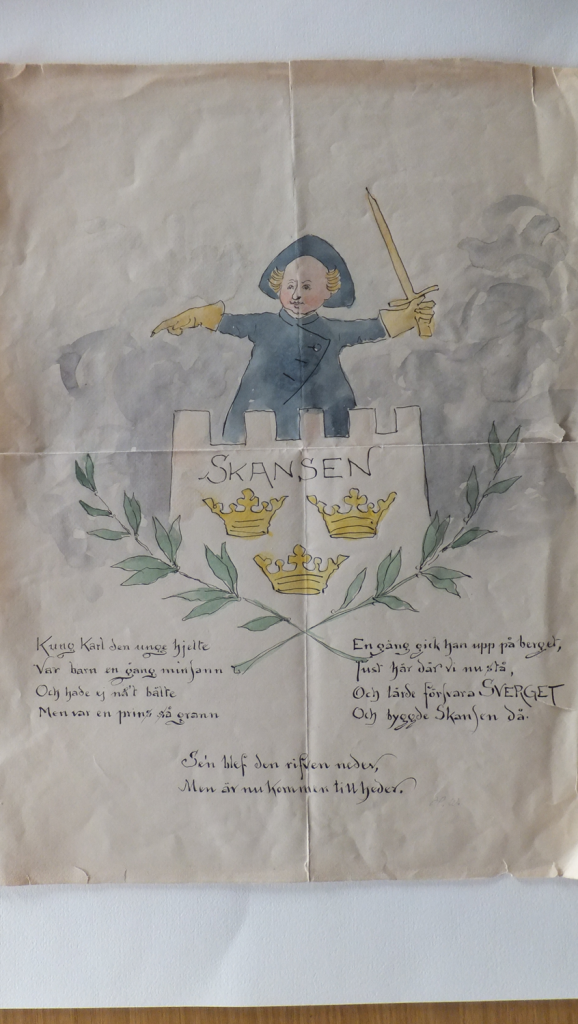 SKANSEN
Kung Karl den unge hjelte
Var barn en gång minsann
Och hade ej nå't bälte
Men var en prins så grann
En gång gick han upp på berget,
Just här där vi nu stå,
Och lärde försvara SVERGET
Och byggde Skansen då.
Se'n blef den rifven neder,
Men är nu kommen till heder.